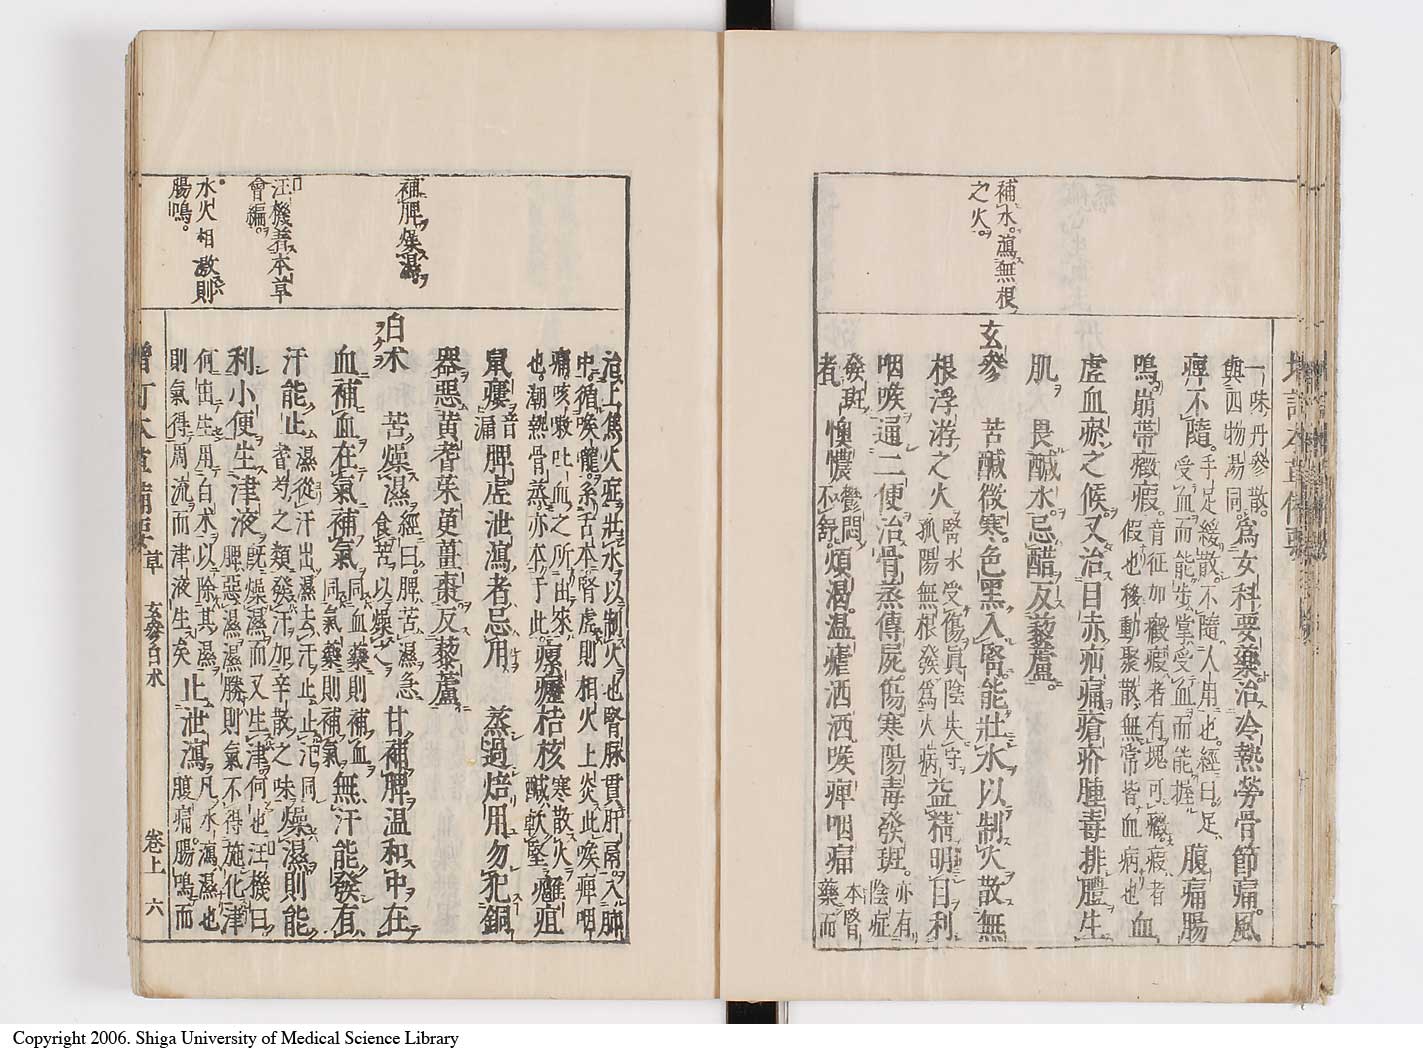 補水。瀉無根
之火。
一味丹參散。
與四物湯同。爲女科要藥治冷熱勞骨節痛。風
痺不隨。手足緩散。不隨人用也。經曰。足受血而能步掌受血而能握腹痛腸
鳴崩帶癥瘕。音征加癥者有塊可癥。瘕者假也移動聚散無常皆血病也血
虛血瘀之候。又治目赤疝痛瘡疥腫毒排膿生
肌。畏鹹水。忌醋反藜蘆。
玄參 苦鹹微寒。色黑入腎。能壯水以制火散無
根浮游之火腎水受傷眞陰失守孤陽無根發爲火病益精明目利
咽喉通二便治骨蒸傳屍。傷寒陽毒發斑。亦有陰症
發斑者懊憹鬱悶不舒。煩渴。温瘧洒洒喉痺咽痛本腎藥而
補脾燥濕。
汪機著本草
會編。
水火相激則
腸鳴。
治上焦火症壯水以制火也腎脉貫肝膈。入肺
中。循喉嚨。系舌本腎虛則相火上炎此喉痺咽
痛咳嗽吐血之所由來
也。潮熱骨蒸亦本于此。瘰癧結核寒散火鹹軟堅癰疽
鼠瘻音漏脾虛泄瀉者忌用 蒸過焙用勿犯銅
器惡黃耆茱萸薑棗反藜蘆
白朮 苦燥濕經曰。脾苦濕急食苦以燥之甘補脾温和中在
血補血在氣補氣同血藥則補血同氣藥則補氣無汗能發有
汗能止濕從汗出濕去汗止止汗同耆芍之類發汗加辛散之味燥濕則能
利小便生津液旣燥濕而又生津何也汪機曰脾惡濕濕勝則氣不得施化津
何由生用白朮以除其濕
則氣得周流而津液生矣止泄瀉凡水瀉濕也腹痛腸鳴而
增訂本草備要 草 玄參白朮 卷上 六